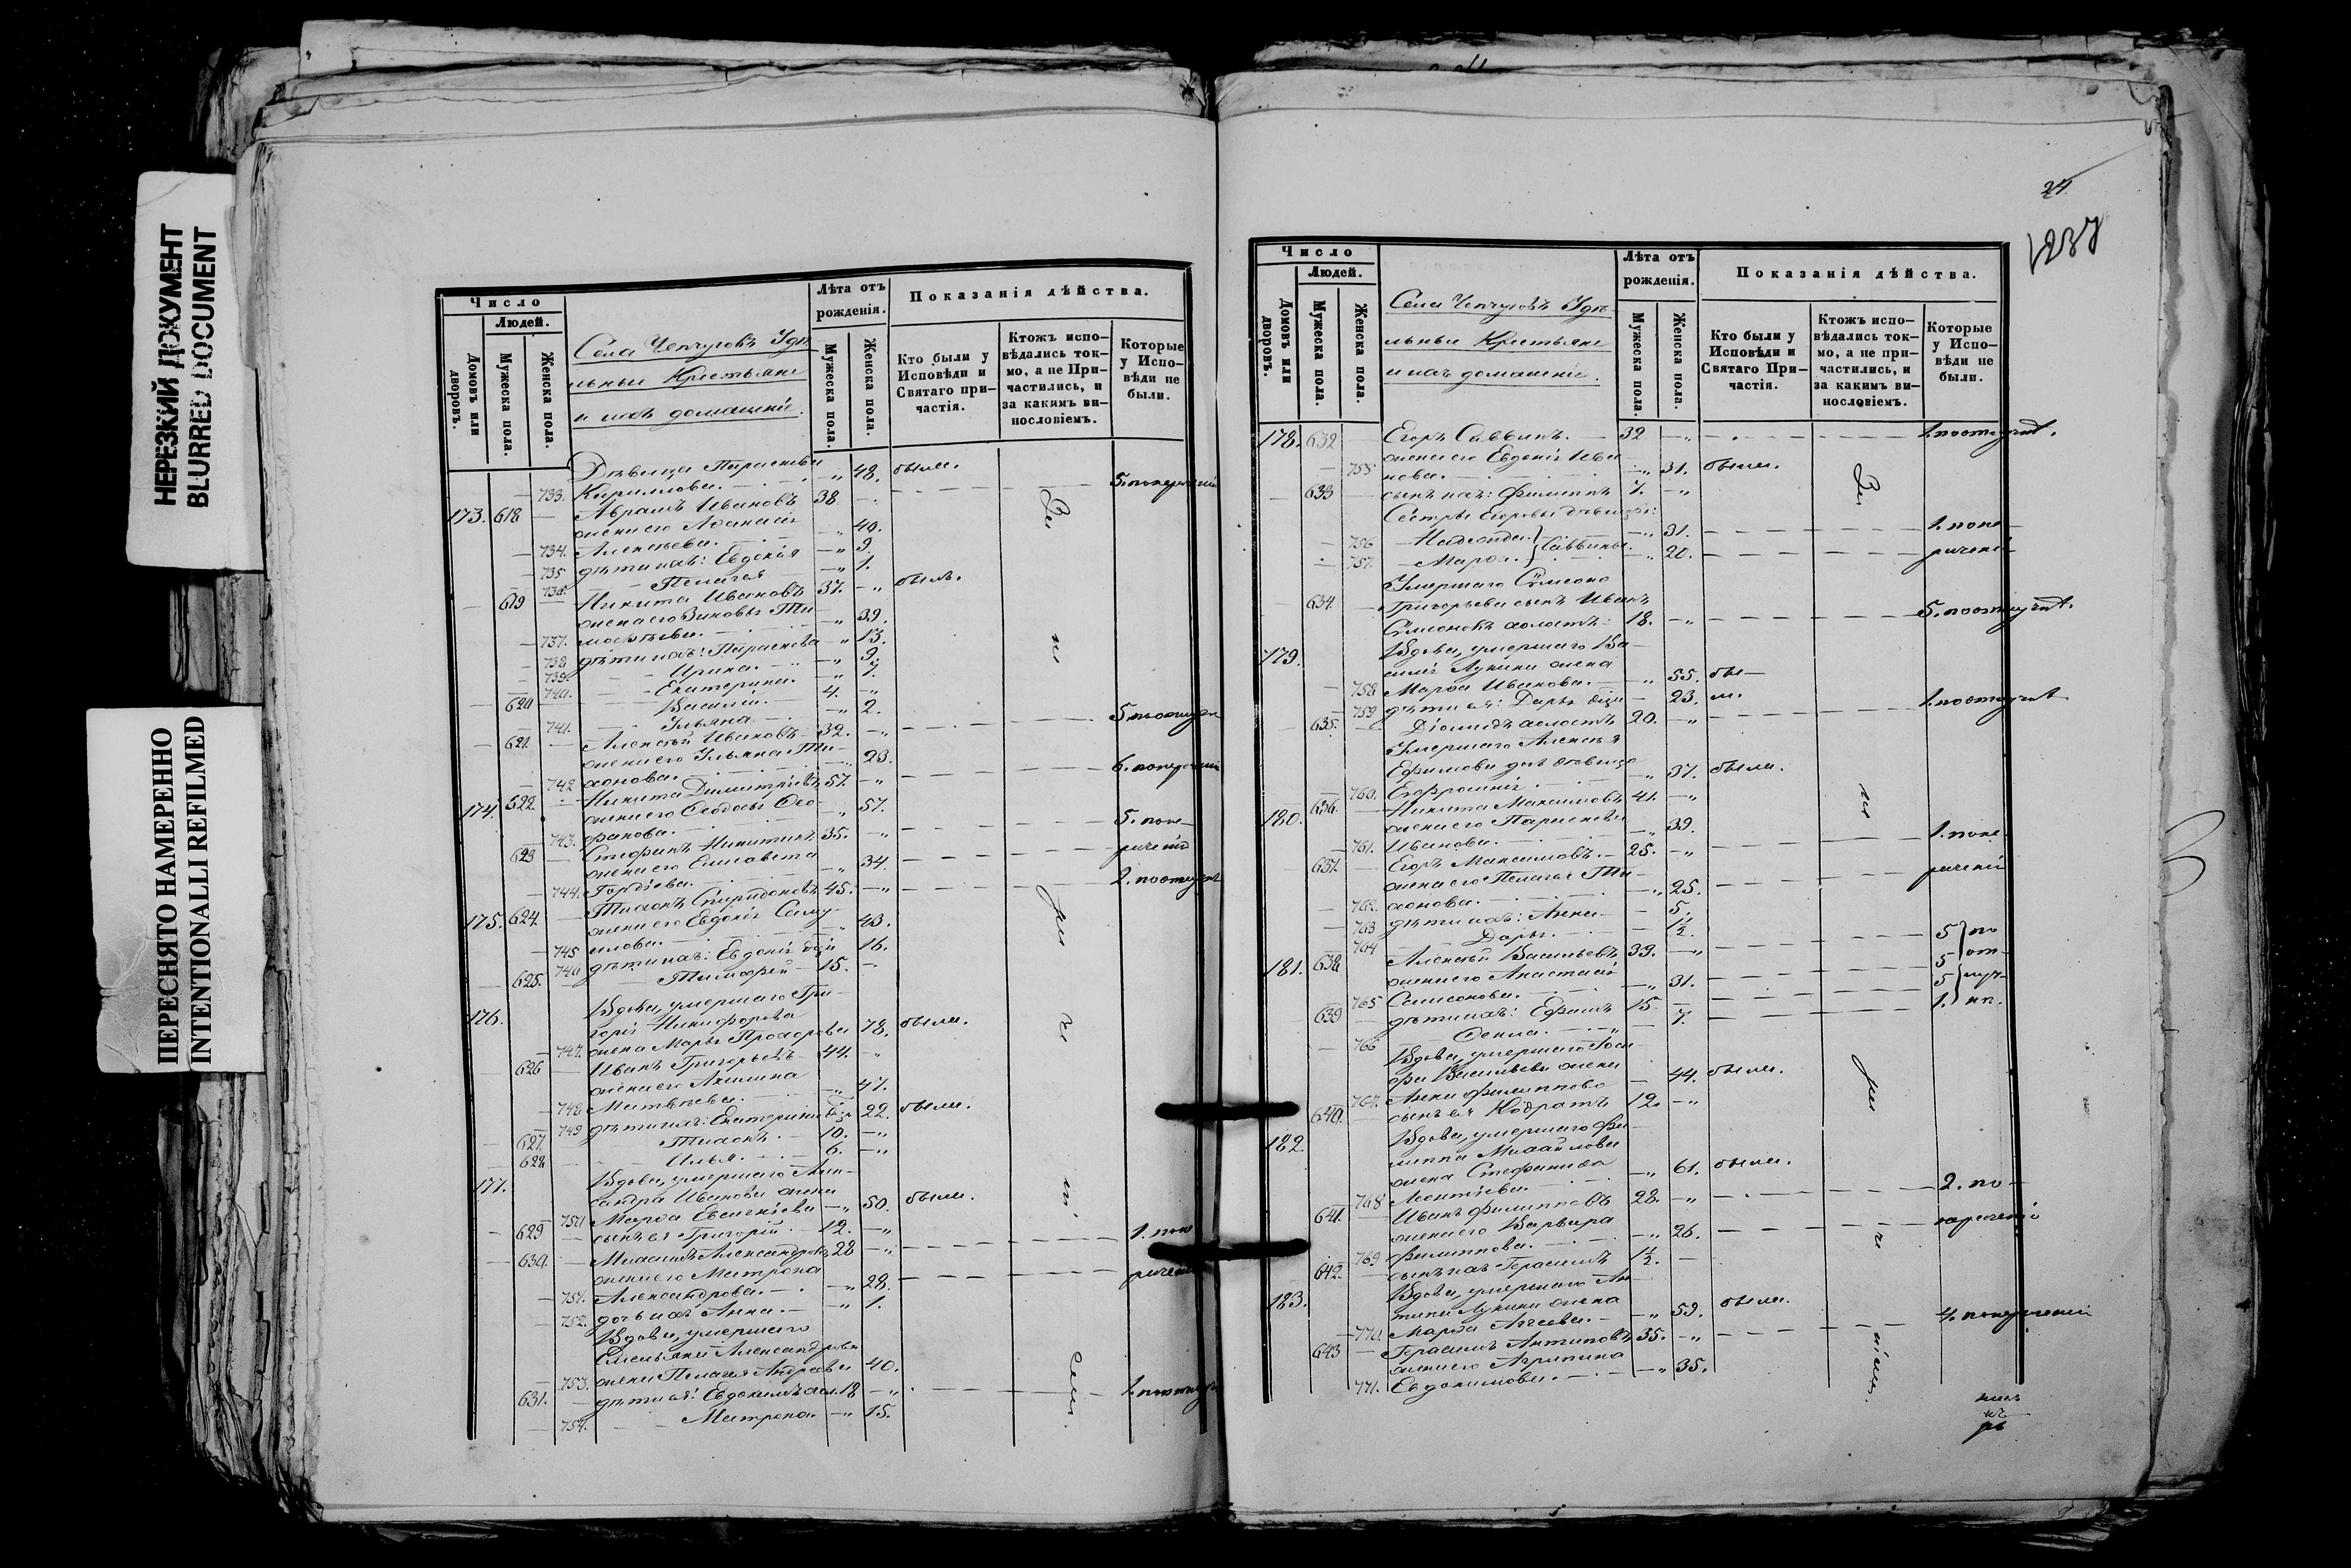 НЕРЕЗКИЙ ДОКУМЕНТ
BLURRED DOCUMENT
ПЕРЕСНЯТО НАМЕРЕННО
INTENTIONALLI REFILMED
Число
Людей.
Домовъ или дворовъ.
Мужеска пола.
Женска пола.
Села Чепчуговъ Удѣ-
льные Крестьяне
и ихъ домашніе.
Лѣта отъ рожденія.
Мужеска пола.
Женска пола.
Показанія дѣйства.
Кто были у Исповѣди и Святаго при-частія.
Ктожъ испо-вѣдались ток-мо, а не При-частились, и за какимъ ви-нословіемъ.
Которые у Испо-вѣди не были.
Дѣвица Параскева
733. Кирилова. 48. были.
173. 618 Аврамъ Ивановъ 38 5.
жена его Афанасія
734. Алексѣева. 40.
735 дѣти ихъ: Евдокія 3.
736 Пелагея 1.
619 Никита Ивановъ 37. былъ.
жена его Зиновья Ти-
737. мофѣева. 39.
738 дѣти ихъ: Параскева 13.
739. Ирина. 9.
740. Екатерина. 7.
620 Василій. 4.
741. Ульяна 2.
621. Алексѣй Ивановъ 32. 5
жена его Ульяна Ти-
742 хонова. 23.
174. 622 Никита Димитріевъ 57. 6.
жена его Ѳеодосья Ѳео-
743. фанова. 57.
623 Стефанъ Никитинъ 35. 5.
жена его Елисавета
744. Гордѣева. 34.
175. 624. Тихонъ Спиридоновъ 45. 2.
жена его Евдокія Саму-
745 илова. 43.
746 дѣти ихъ: Евдокія 16.
625. Тимофей 15.
176. Вдова, умершаго Гри-
горія Никифорова
747. жена Марья Прохорова 78. были.
626 Иванъ Григорьевъ 44.
жена его Акилина
748 Матвѣева. 47.
749 дѣти ихъ: Екатерина 22. были.
627. Тихонъ. 10.
628 Илья. 6.
177. Вдова, умершаго Алек-
сандра Иванова жена
750 Марѳа Евсигнѣева 50. были.
629 сынъ ея Григорій. 12.
630. Михаилъ Александровъ 28 1.
жена его Матрона
751. Александрова. 28.
752. дочь ихъ Анна. 1.
Вдова, умершаго
Емельяна Александрова
753. жена Пелагея Андреева 40.
631. дѣти ея: Евдокимъ 18 1.
754. Матрона 15.
24
1237
Число
Людей.
Домовъ или дворовъ.
Мужеска пола.
Женска пола.
Села Чепчуговъ Удѣ-
льные Крестьяне
и ихъ домашніе.
Лѣта отъ рожденія.
Мужеска пола.
Женска пола.
Показанія дѣйства.
Кто были у Исповѣди и Святаго При-частія.
Ктожъ испо-вѣдались ток-мо, а не при-частились, и за какимъ ви-нословіемъ.
Которые у Испо-вѣди не были.
178. 632 Егоръ Саввинъ. 32 1.
жена его Евдокія Ива-
755 нова. 31. были.
633 сынъ ихъ: Филиппъ 7.
Сестры Егоровы дѣвицы:
756 Надежда 31. 1.
757. Марѳа. Саввины. 20.
Умершаго Сѵмеона
634. Григорьева сынъ Иванъ
Сѵмеоновъ холостъ. 18. 5.
179. Вдова, умершаго Ва-
силія Лукина жена
758 Марѳа Иванова. 55. бы-
759 дѣти ея: Дарья 23. ли.
635. Діомидъ холостъ 20. 1.
Умершаго Алексѣя
Ефимова дочь дѣвица
760. Евфросинія 37. были.
180. 636. Никита Максимовъ 41.
жена его Параскева
761. Иванова. 39.
637. Егоръ Максимовъ. 25. 1.
жена его Пелагея Ти-
762. хонова. 25.
763 дѣти ихъ: Анна 5.
764 Дарья. 1/2.
181. 638 Алексѣй Васильевъ 33. 5
жена его Анастасія
765 Самсонова. 31. 5
639 дѣти ихъ: Ефимъ 15 5
766 Ѳекла. 7. 1.
Вдова, умершаго Іоси-
фа Васильева жена
767. Анна Филиппова 44. были.
640. сынъ ея Кодратъ 12.
182. Вдова, умершаго Фи-
липпа Михайлова
жена Стефанида
768 Леонтіева. 61. были.
641. Иванъ Филипповъ 28. 2.
жена его Варвара
769 Филиппова. 26.
642. сынъ ихъ Герасимъ 1 1/2.
183. Вдова, умершаго Ан-
типы Лукина жена
770 Марѳа Агѣева. 59. были.
643 Герасимъ Антиповъ 35. 4.
жена его Агрипина
771. Евдокимова. 35.